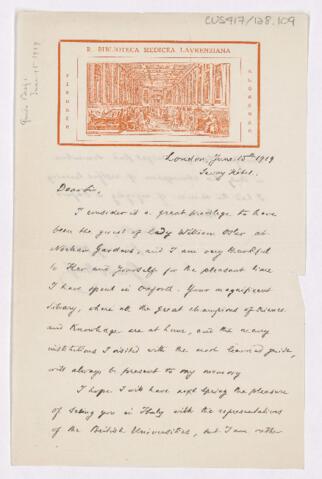 CUS417/128.109
R. BIBLIOTECA MEDICEA LAURENZIANA
FIRENZE
FLORENCE
London, June 15th 1919
Savoy Hotel.
Dear Sir,
I consider it a great privilege to have
been the guest of Lady William Osler at
Norham Gardens, and I am very thankful
to Her and Yourself for the pleasant time
I have spent in Oxford. Your magnificent
library, where all the great champions of Science
and Knowledge are at home, and the many
institutions I visited with the most learned guide,
will always be present to my memory.
I hope I will have next Spring the pleasure
of seeing you in Italy with the representatives
of the British Universities, but I am rather